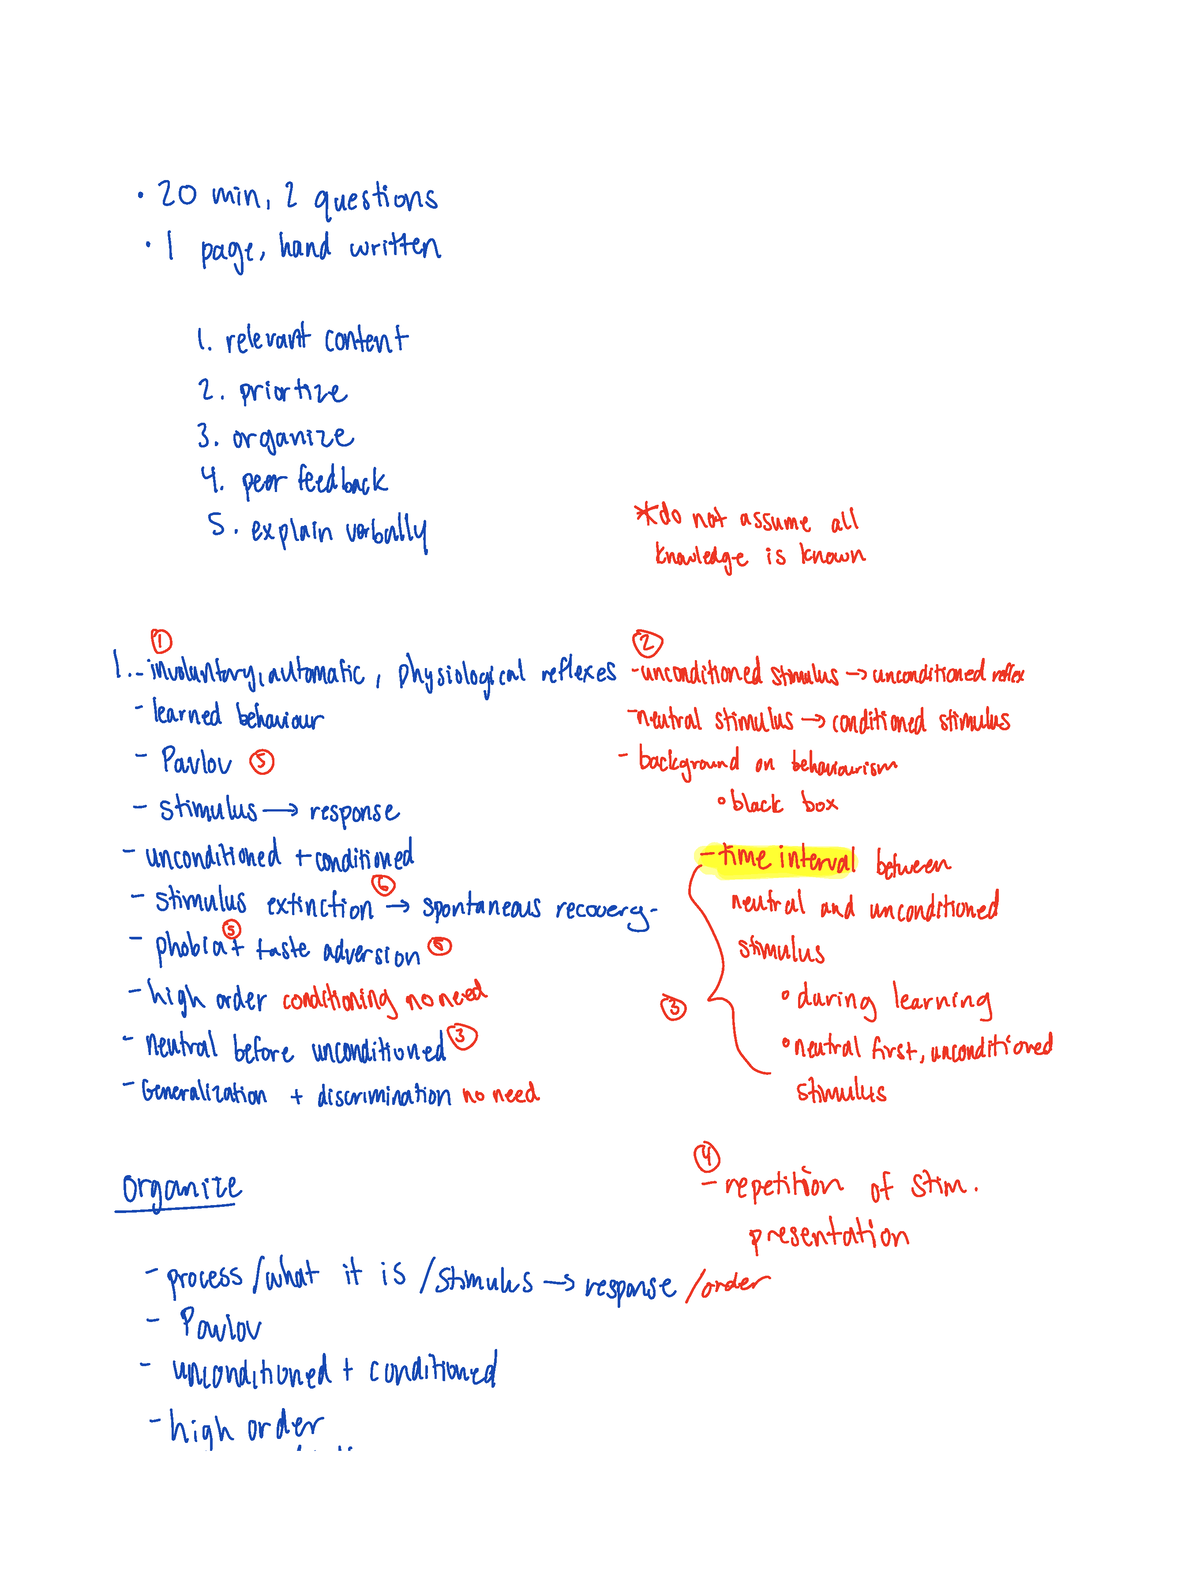 • 20 min, 2 questions
• 1 page, hand written
1. relevant content
2. priortize
3. organize
4. peer feedback
5. explain verbally
*do not assume all
knowledge is known
①
1. - involuntary, automatic, physiological reflexes
- learned behaviour
- Pavlov ⑤
- stimulus → response
- unconditioned + conditioned
- stimulus extinction ⑥ → spontaneous recovery -
- phobia ⑤ + taste adversion ⑤
- high order conditioning no need
- neutral before unconditioned ③
- Generalization + discrimination no need
②
- unconditioned stimulus → unconditioned reflex
- neutral stimulus → conditioned stimulus
- background on behaviourism
° black box
- time interval between
neutral and unconditioned
stimulus
③
° during learning
° neutral first, unconditioned
stimulus
④
- repetition of stim.
presentation
organize
- process / what it is / stimulus → response / order
- Pavlov
- unconditioned + conditioned
- high order